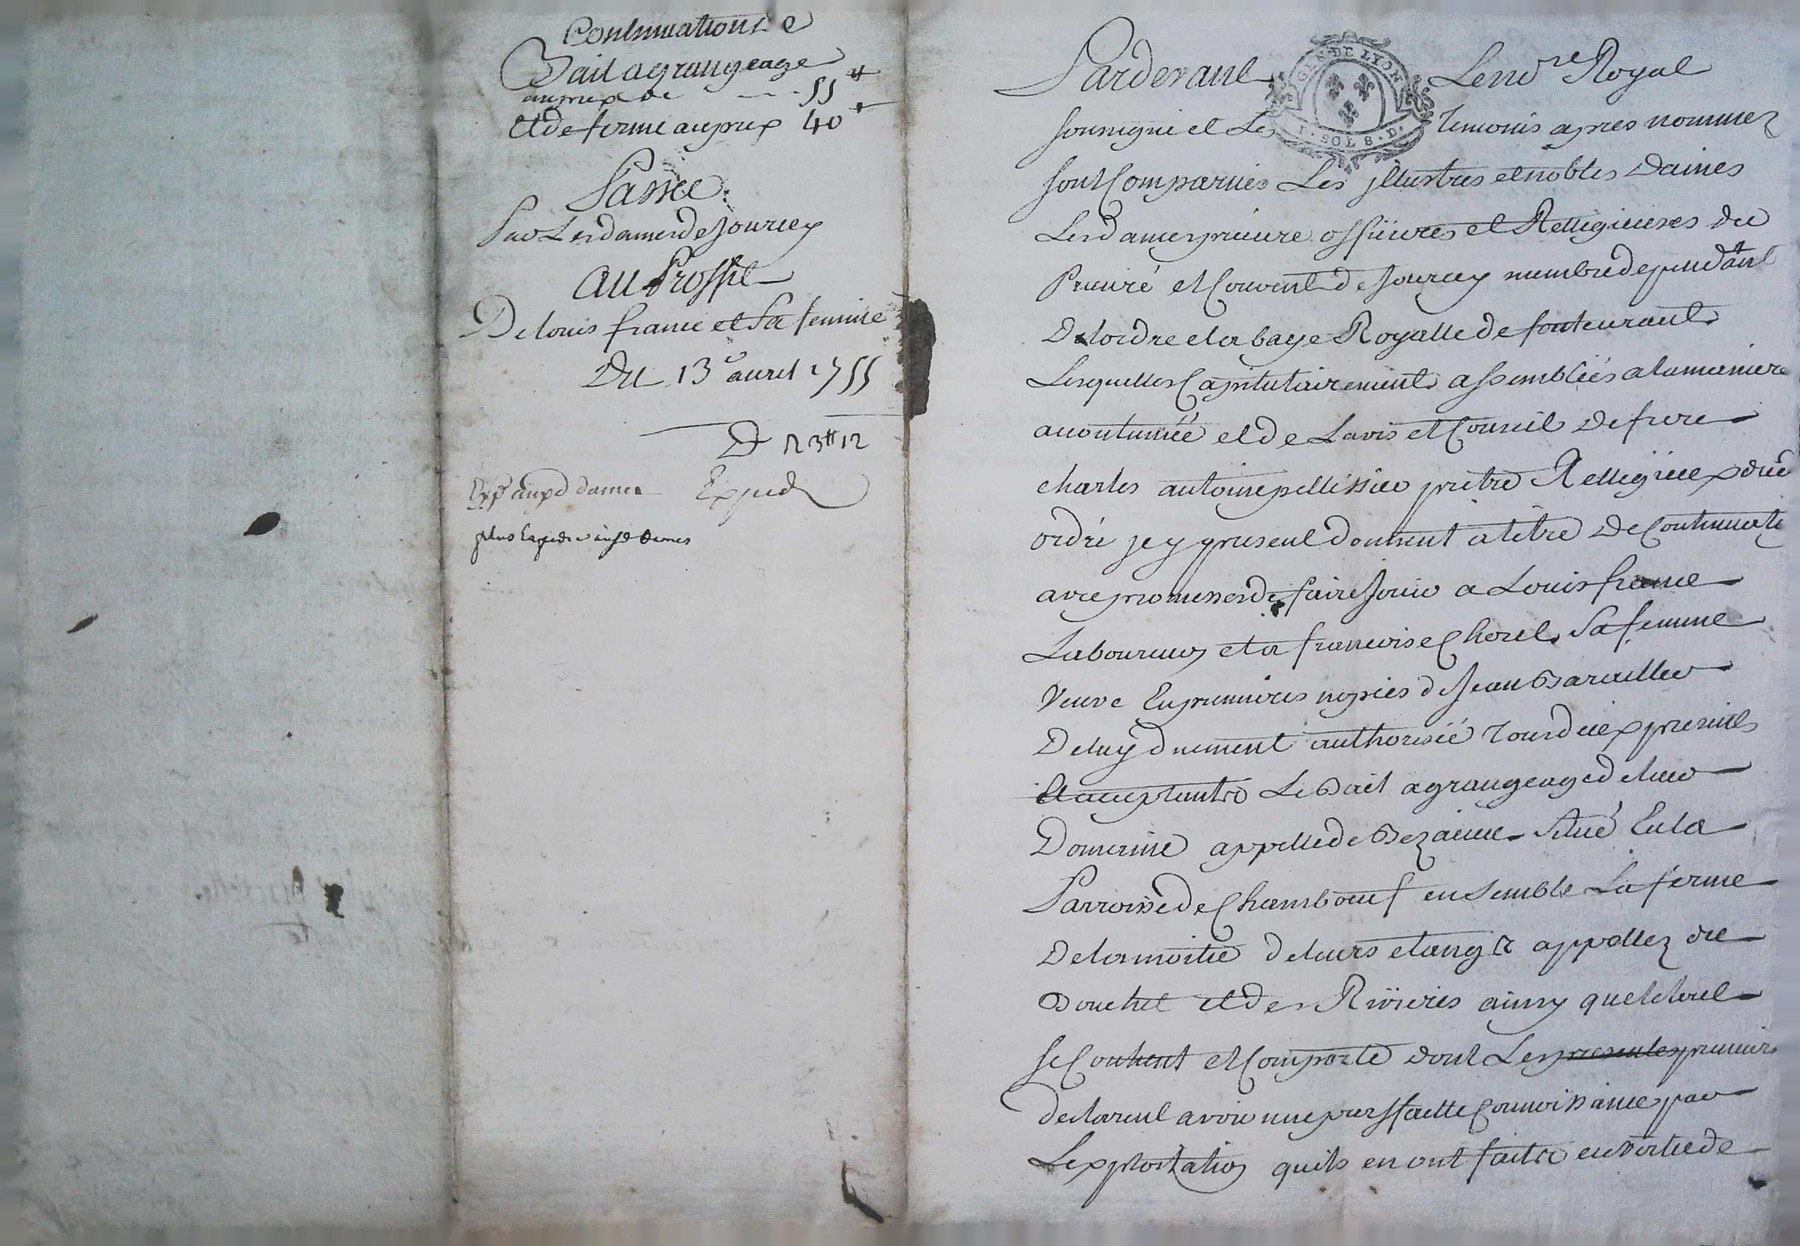 Continuation de
Bail a grangeage
au prix de - - 55 ₶
Et de ferme au prix 40 ₶
Passée
Par Les dames de Jourcey
Au Proffit
De louis france et Sa femme
Du 13e avril 1755
D 3₶ 12
Expedn
plus Expedié auxd dames
Pardevant Le nore Royal
soussigné et Les temoins apres nommez
sont Comparues Les jllustres et nobles Daines
Les dames prieure officieres et Relligieuses du
Prieuré et Couvent de Jourcey membre dependant
De lordre et abaye Royalle de fontevrault
Lesquelles Capitulairement assemblées a la maniere
acoutumée et de Lavis et Conseil De frere
charles antoine pellissier prêtre Relligieux dud
ordre jcy present donnent a titre De Continuation
avec promesses de faire Jouir a Louis france
Laboureur et a francoise Chorel Sa femme
Veuve En premieres nopces de Jean Barailler
De luy duement authorisée tous deux presents
Et acceptants Le Bail a grangeage de leur
Domaine appellé de Bezaieux Situé En la
Parroisse de Chambœuf ensemble La ferme
De la moitié de leurs etangs appellez du
Bouchet et des Rivieres ainsy que le tout
se Contient et Comporte dont Les presents preneurs
declarent avoir une parffaitte Connoissance par
Lexploitation quils en ont faitte en vertu de